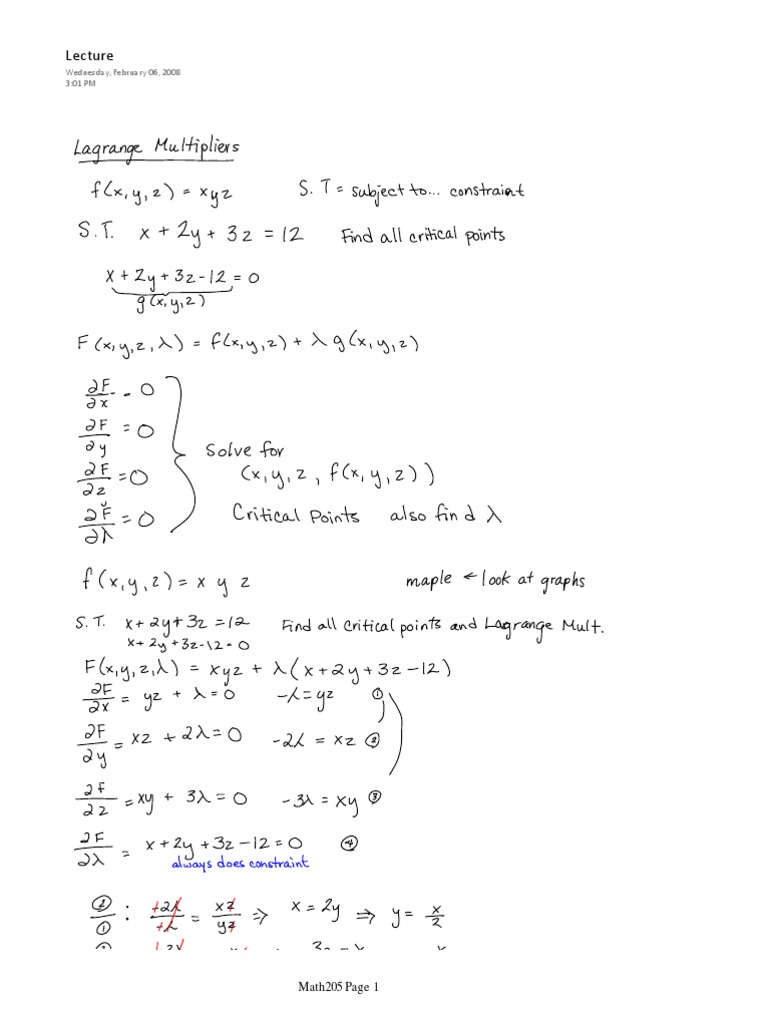 Lecture
Wednesday, February 06, 2008
3:01 PM
Lagrange Multipliers
f(x,y,z) = xyz S.T = subject to... constraint
S.T. x + 2y + 3z = 12 Find all critical points
x + 2y + 3z - 12 = 0
g(x,y,z)
F(x,y,z,λ) = f(x,y,z) + λ g(x,y,z)
∂F/∂x = 0
∂F/∂y = 0
Solve for
∂F/∂z = 0 (x,y,z, f(x,y,z))
∂F/∂λ = 0 Critical Points also find λ
f(x,y,z) = x y z maple ← look at graphs
S.T. x + 2y + 3z = 12 Find all critical points and Lagrange Mult.
x + 2y + 3z - 12 = 0
F(x,y,z,λ) = xyz + λ(x + 2y + 3z - 12)
∂F/∂x = yz + λ = 0 -λ = yz ①
∂F/∂y = xz + 2λ = 0 -2λ = xz ②
∂F/∂z = xy + 3λ = 0 -3λ = xy ③
∂F/∂λ = x + 2y + 3z - 12 = 0 ④
always does constraint
②/① : +2λ/+λ = xz/yz ⇒ x = 2y ⇒ y = x/2
Math205 Page 1